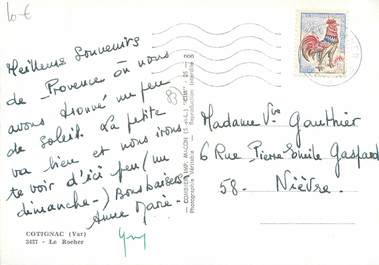 10€
Meilleurs Souvenirs
de Provence où nous
avons trouvé un peu
de soleil. La petite
va bien et nous irons
te voir d'ici peu (un
dimanche-) Bons baisers-
Anne Marie-
COTIGNAC (Var)
3427 - Le Rocher
COMBIER IMP. MACON (S.-&-L.) "CIM"
Photographie Véritable - Reproduction interdite
83
Madame Vve Gauthier
6 Rue Pierre Emile Gaspard
58- Nièvre-